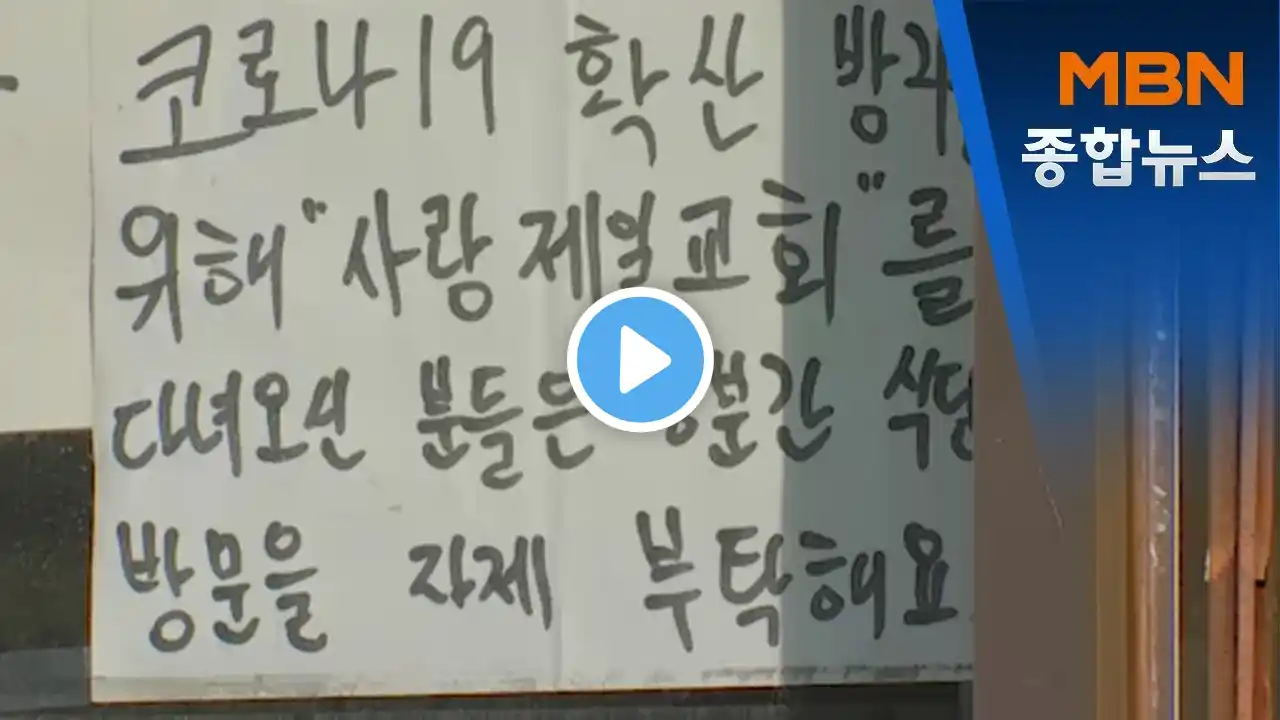 코로나19 확산
위해 "사랑제일교회"를
다녀오신 분들은 간
방문을 자제 부탁해요
MBN
종합뉴스